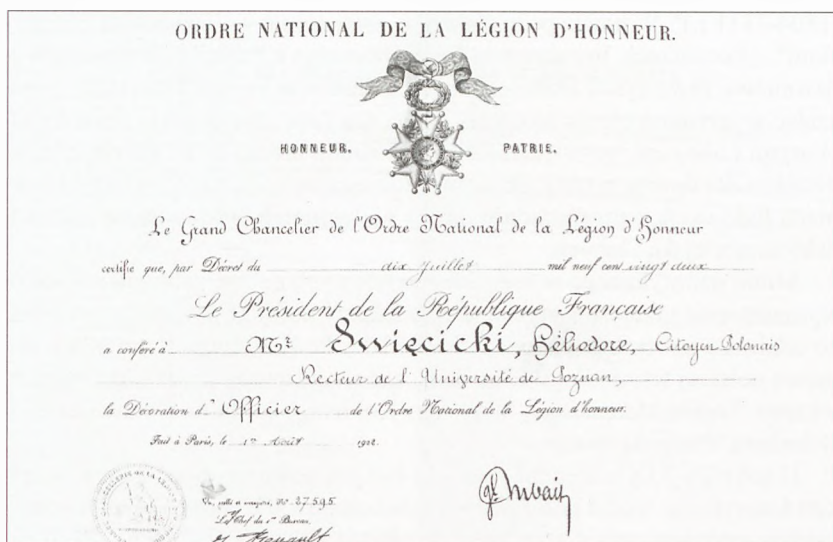 ORDRE NATIONAL DE LA LÉGION D'HONNEUR.
HONNEUR. PATRIE.
Le Grand Chancelier de l'Ordre National de la Légion d'Honneur
certifie que, par Décret du dix Juillet mil neuf cent vingt deux
Le Président de la République Française
a conféré à Mr Swięcicki, Héliodore, Citoyen Polonais
Recteur de l'Université de Poznan,
la Décoration d' Officier de l'Ordre National de la Légion d'honneur.
Fait à Paris, le 1er Août 1922.
Vu, No 27.595
Le Chef du 1er Bureau,
Renault